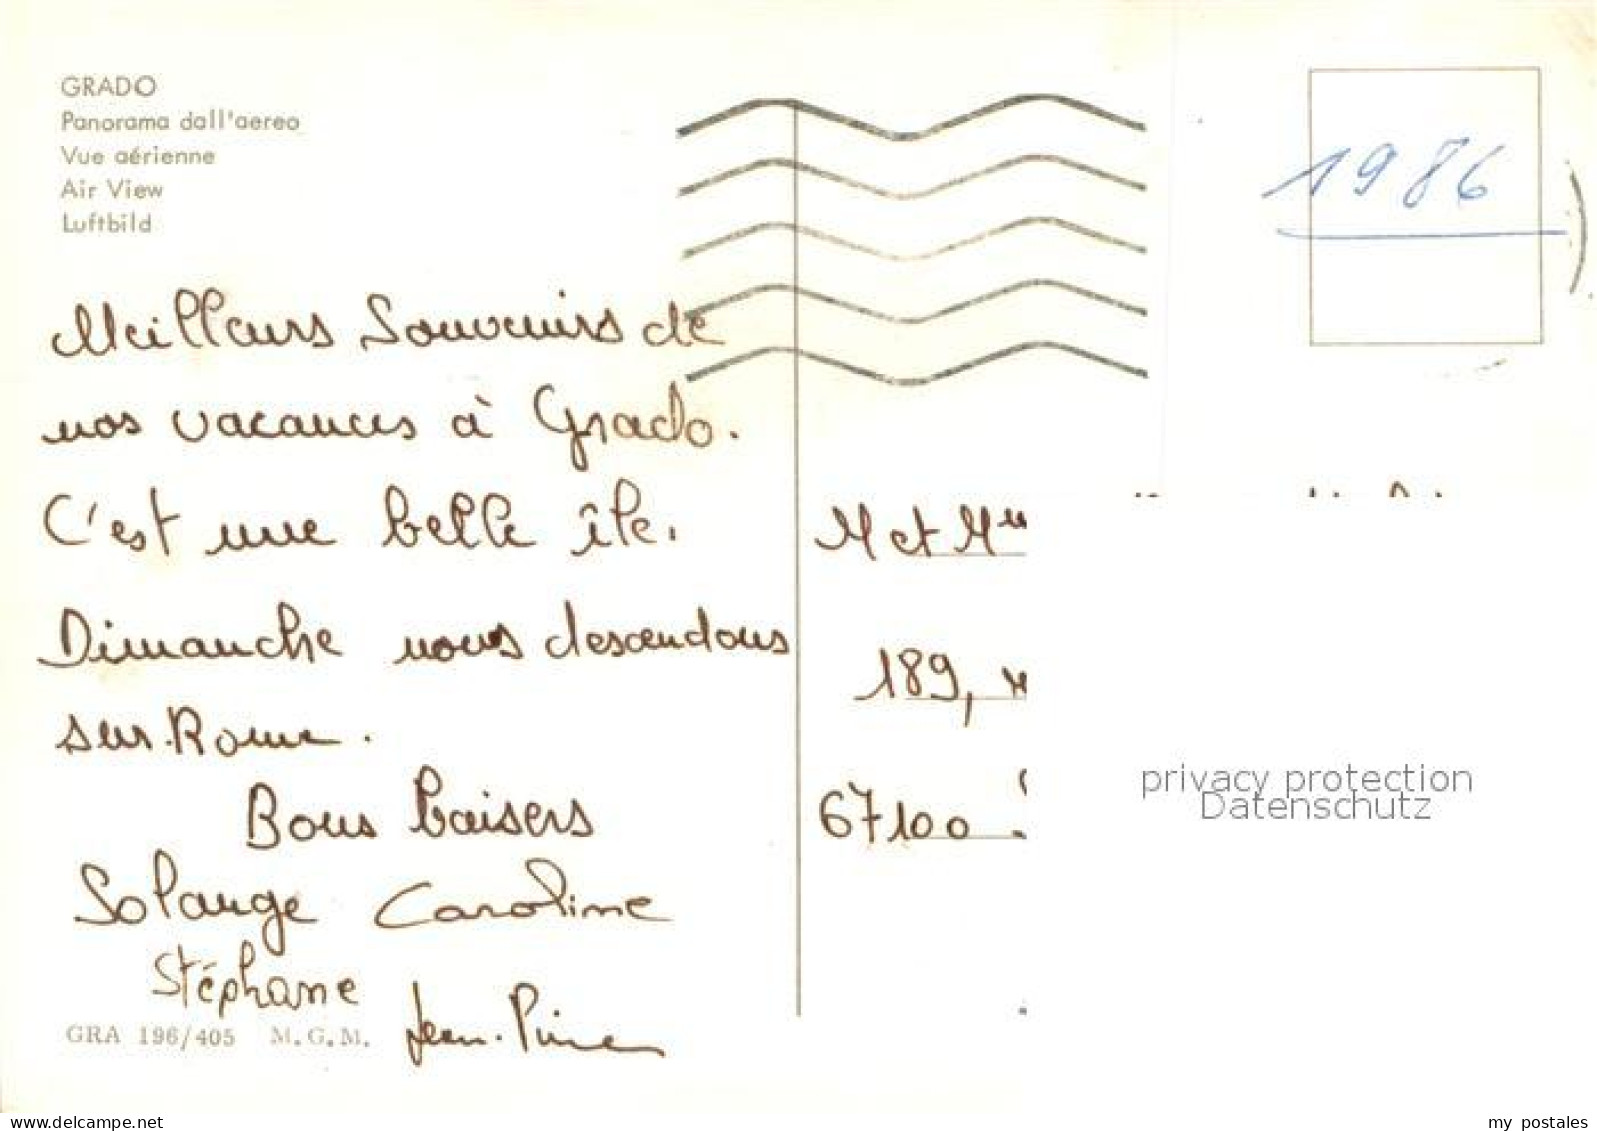 GRADO
Panorama dall'aereo
Vue aérienne
Air View
Luftbild
1986
Meilleurs Souvenirs de
nos vacances à Grado.
C'est une belle île.
Dimanche nous descendons
sur Rome.
Bons baisers
Solange Caroline
Stéphane Jean-Pierre
GRA 196/405 M.G.M.
M et Mme
189,
67100
privacy protection
Datenschutz
www.delcampe.net
my_postales